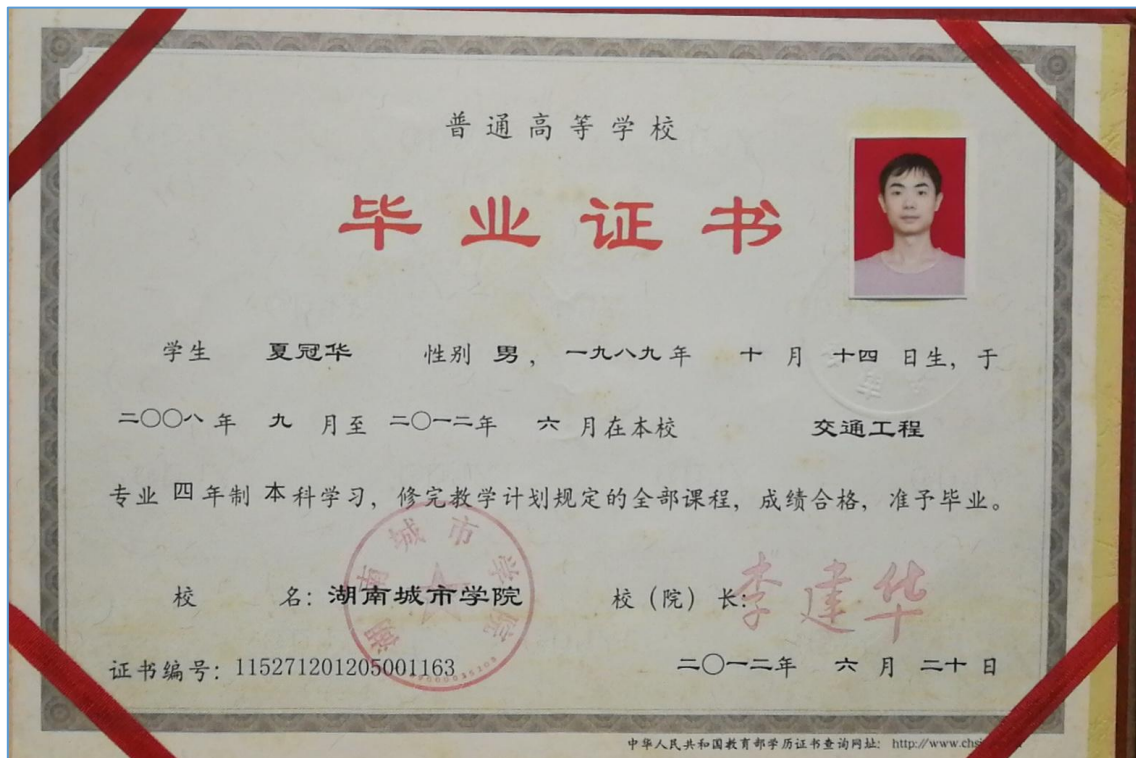 普通高等学校
毕业证书
学生 夏冠华 性别 男，一九八九年 十 月 十四 日生，于
二〇〇八年 九 月至 二〇一二年 六 月在本校 交通工程
专业 四 年制 本 科学习，修完教学计划规定的全部课程，成绩合格，准予毕业。
湖南城市学院
校 名：湖南城市学院 校（院）长：李建华
证书编号：115271201205001163 二〇一二年 六 月 二十 日
中华人民共和国教育部学历证书查询网址：http://www.chsi